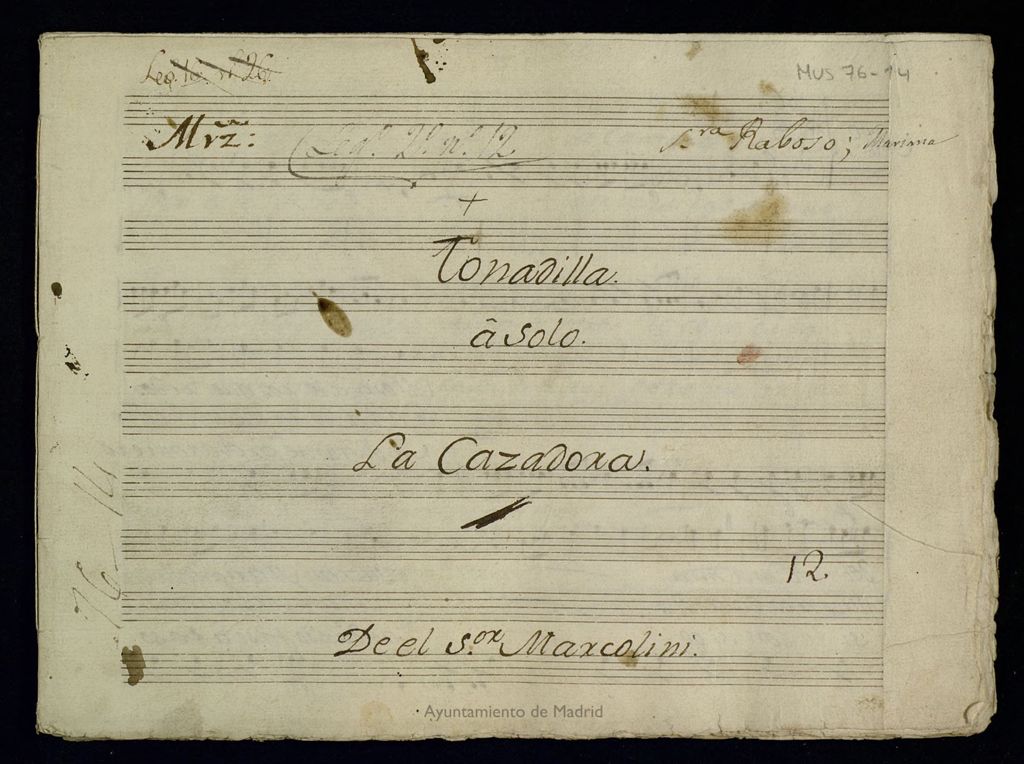 Leg. 1º nº 26
MUS 76-14
Mrz:
Leg. 2º nº 12
Sra Raboso; Mariana
+
Tonadilla.
â Solo.
La Cazadora.
76-14
12
De el S.or Marcolini.
Ayuntamiento de Madrid